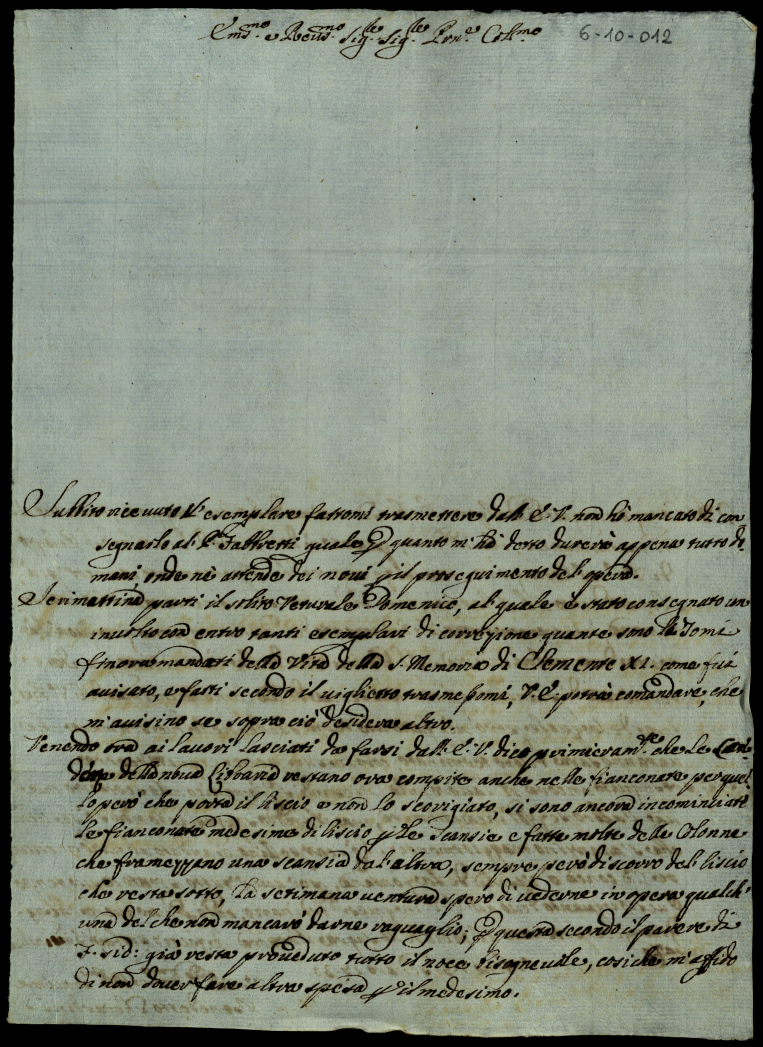 Em.mo e Rev.mo Sig.re Sig.re P'ron.e Coll.mo
6-10-012
Subbito riceuuto l'esemplare fattomi trasmettere dall'E.V. non hò mancato di con
segnarlo al P. Fabbretti quale p quanto m'hà detto durerà appena tutto do
mani, onde nè attende dei noui p il proseguimento del'opera.
Ierimattina partì il solito Veturale Domenico, al quale è stato consegnato un
inuolto con entro tanti esemplari di correzione quante sono li Tomi
finora mandati della Vita della S. Memoria di Clemente XI. come fui
auisato, e fatti secondo il uiglietto trasmessomi, V.E. potrà comandare, che
m'auisino se sopra ciò desidera altro.
Venendo ora ai lauori lasciati da farsi dall'E.V. dico primieram.te che le
della noua Libraria restano ora compite anche nelle fianconate per quel
lo però che porta il liscio e non lo scorigiato, si sono ancora incominciate
le fianconate medesime di liscio p le Scansie e fatte molte delle Colonne
che framezzano una scansia dal'altra, sempre però discorro del liscio
che resta sotto, la setimana uentura spero di uederne in opera qualch'
una del che non mancarò darne raguaglio; p questa secondo il parere di
F. già resta proueduto tutto il noce bisogneuole, cosiche m'affido
di non douer fare altra spesa p il medesimo.